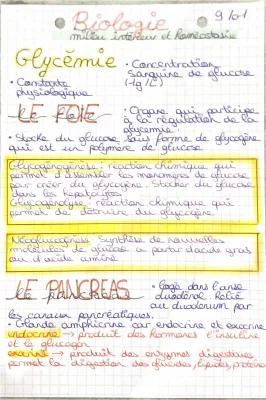 9/01
Biologie
milieu intérieur et homéostasie
Glycémie
• Concentration
sanguine de glucose
(~1g/L)
• Constante
physiologique
LE FOIE
• Organe qui participe
à la régulation de la
glycémie.
• Stocke du glucose sous forme de glycogène
qui est un polymère de glucose
Glycogénogénèse : réaction chimique qui
permet d'assembler les monomères de glucose
pour créer du glycogène. Stocker du glucose
dans les hépatocytes
Glycogénolyse : réaction chimique qui
permet de détruire du glycogène.
Néoglucogénèse : Synthèse de nouvelles
molécules de glucose à partir d'acide gras
ou d'acide aminé
LE PANCREAS
• Logé dans l'anse
duodénal. Relié
au duodénum par
les canaux pancréatiques.
• Glande amphicrine car endocrine et exocrine
endocrine → produit des hormones l'insuline
et le glucagon
exocrine → produit des enzymes digestives
permet la digestion des glucides, lipides, protéines